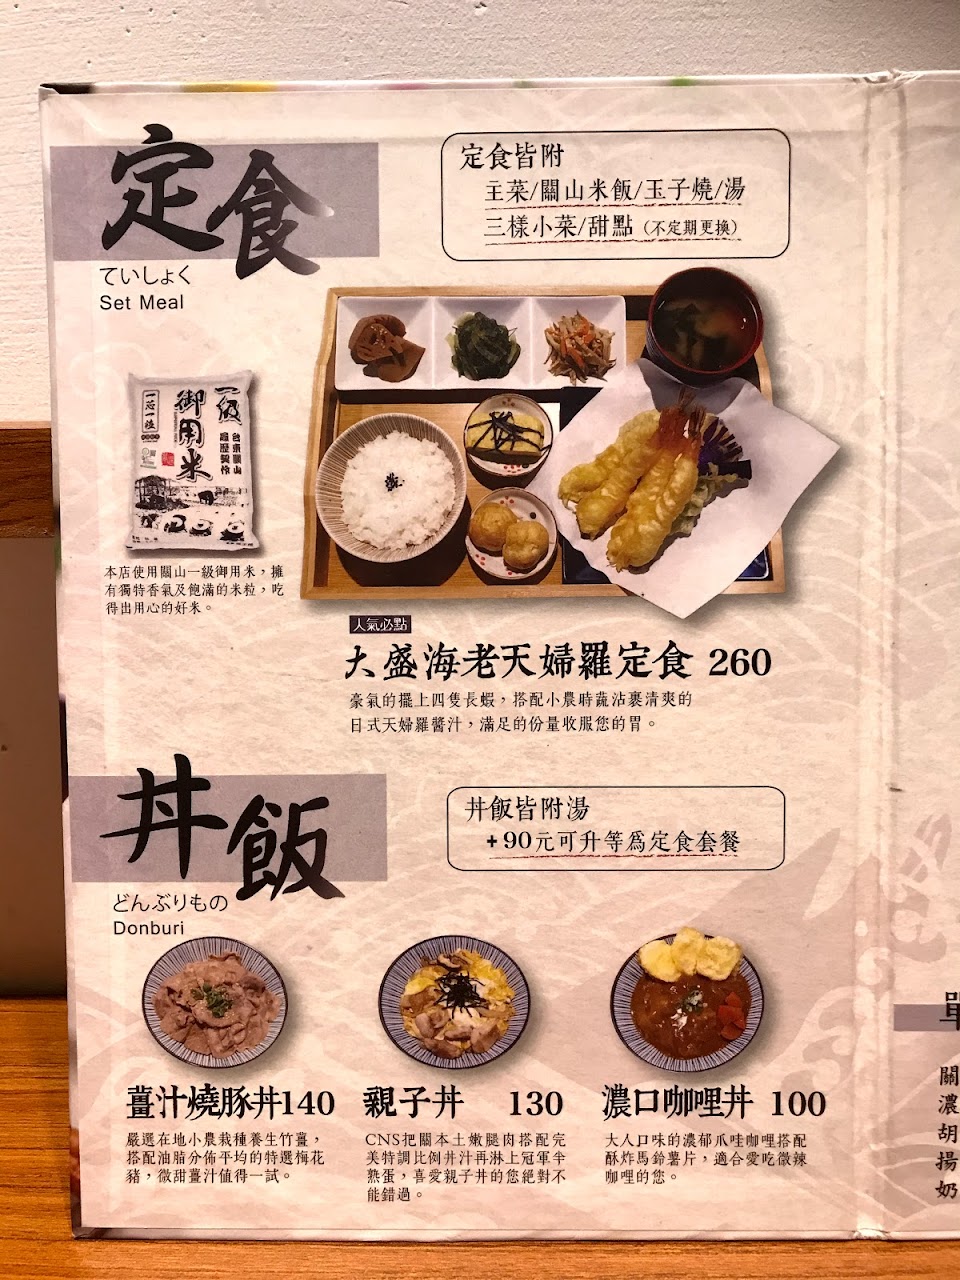 定食
ていしょく
Set Meal
定食皆附
主菜/關山米飯/玉子燒/湯
三樣小菜/甜點（不定期更換）
一級
御用米
一芯一粒
台東關山
本店使用關山一級御用米，擁
有獨特香氣及飽滿的米粒，吃
得出用心的好米。
人氣必點
大盛海老天婦羅定食 260
豪氣的擺上四隻長蝦，搭配小農時蔬沾裹清爽的
日式天婦羅醬汁，滿足的份量收服您的胃。
丼飯
どんぶりもの
Donburi
丼飯皆附湯
+90元可升等為定食套餐
薑汁燒豚丼140
嚴選在地小農栽種養生竹薑，
搭配油脂分佈平均的特選梅花
豬，微甜薑汁值得一試。
親子丼 130
CNS把關本土嫩腿肉搭配完
美特調比例丼汁再淋上冠軍半
熟蛋，喜愛親子丼的您絕對不
能錯過。
濃口咖哩丼 100
大人口味的濃郁爪哇咖哩搭配
酥炸馬鈴薯片，適合愛吃微辣
咖哩的您。
單
關
濃
胡
揚
奶